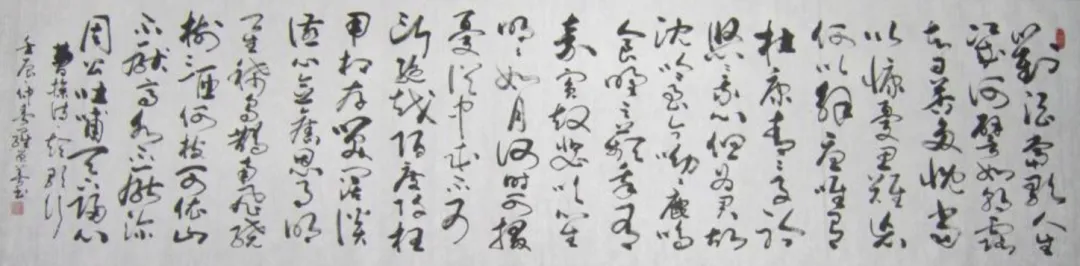 對酒當歌人生
幾何譬如朝露
去日苦多慨當
以慷憂思難忘
何以解憂唯有
杜康青青子衿
悠悠我心但為君故
沈吟至今呦呦鹿鳴
食野之蘋我有
嘉賓鼓瑟吹笙
明明如月何時可掇
憂從中來不可
斷絕越陌度阡枉
用相存契闊談
讌心念舊恩月明
星稀烏鵲南飛繞
樹三匝何枝可依山
不厭高水不厭深
周公吐哺天下歸心
曹操詩短歌行
壬辰仲春羅善書